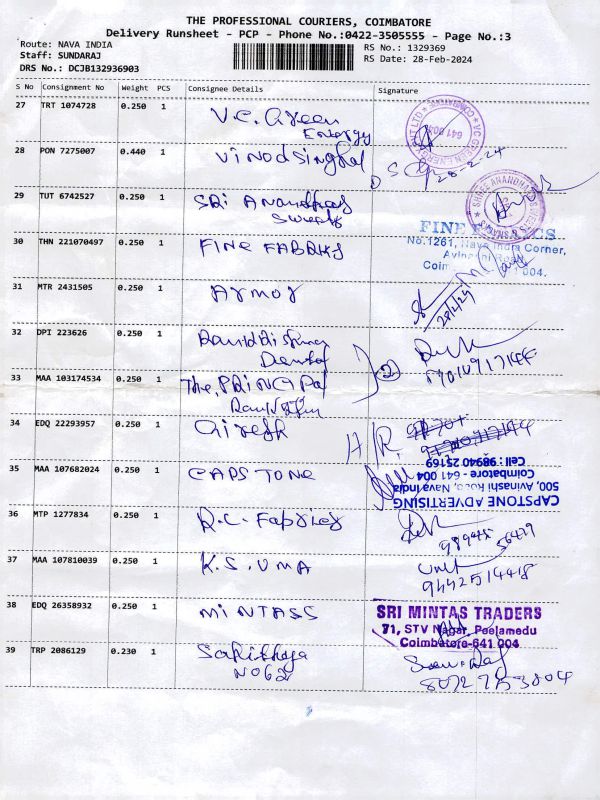 THE PROFESSIONAL COURIERS, COIMBATORE
Delivery Runsheet - PCP - Phone No.:0422-3505555 - Page No.:3
Route: NAVA INDIA
Staff: SUNDARAJ
DRS No.: DCJB132936903
RS No.: 1329369
RS Date: 28-Feb-2024
S No Consignment No Weight PCS Consignee Details Signature
27 TRT 1074728 0.250 1 V.C. Green
Energy
28 PON 7275007 0.440 1 Vinodsinghal
28-2-24
29 TUT 6742527 0.250 1 SRi
Sweets
30 THN 221070497 0.250 1 FINE FABRKS
FINE FABRICS
No.1261, Nava India Corner,
Avinashi Road,
Coim 641 004.
31 MTR 2431505 0.250 1 Armor
32 DPI 223626 0.250 1
Dental
2
33 MAA 103174534 0.250 1 The. PRINCPal
34 EDQ 22293957 0.250 1 Giresh
35 MAA 107682024 0.250 1 CAPSTONE
CAPSTONE ADVERTISING
500, Avinashi Road, Nava India
Coimbatore - 641 004
Cell : 98940 25169
36 MTP 1277834 0.250 1 R.C. Fabrics
37 MAA 107810039 0.250 1 K.S. UMA
9442514418
38 EDQ 26358932 0.250 1 MINTASS
SRI MINTAS TRADERS
71, STV Nagar, Peelamedu
Coimbatore-641 004
39 TRP 2086129 0.230 1
NO62